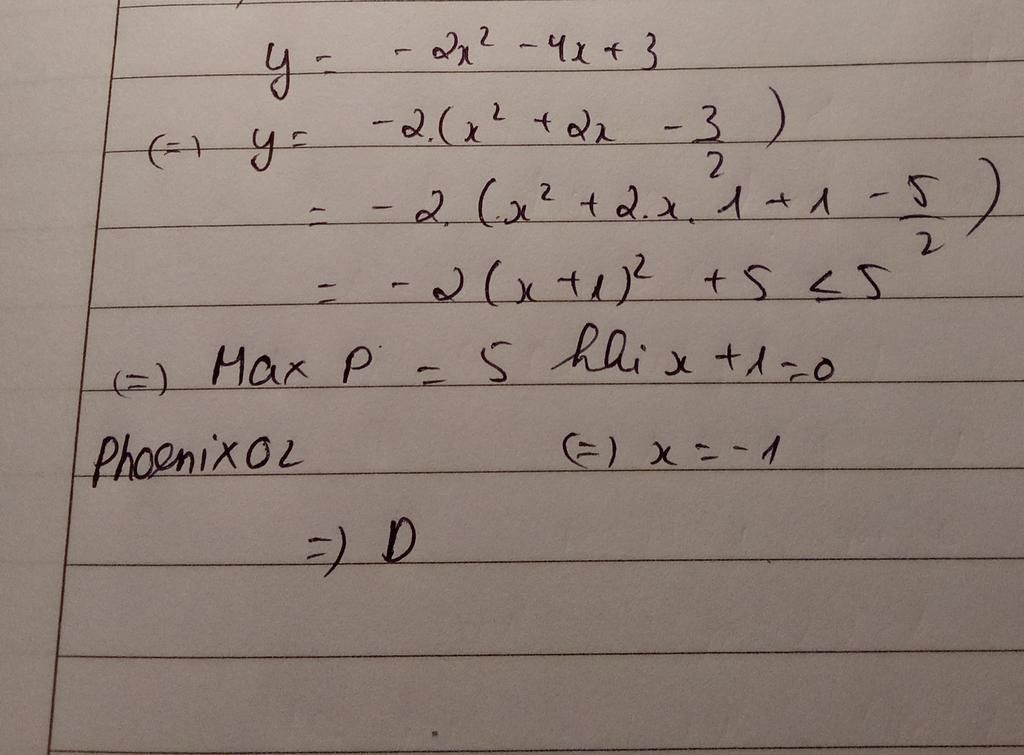 y = -2x² - 4x + 3
(=) y = -2.(x² + 2x - 3/2)
= -2.(x² + 2.x.1 + 1 - 5/2)
= -2(x+1)² + 5 ≤ 5
(=) Max P = 5 khi x + 1 = 0
Phoenix02 (=) x = -1
=) D